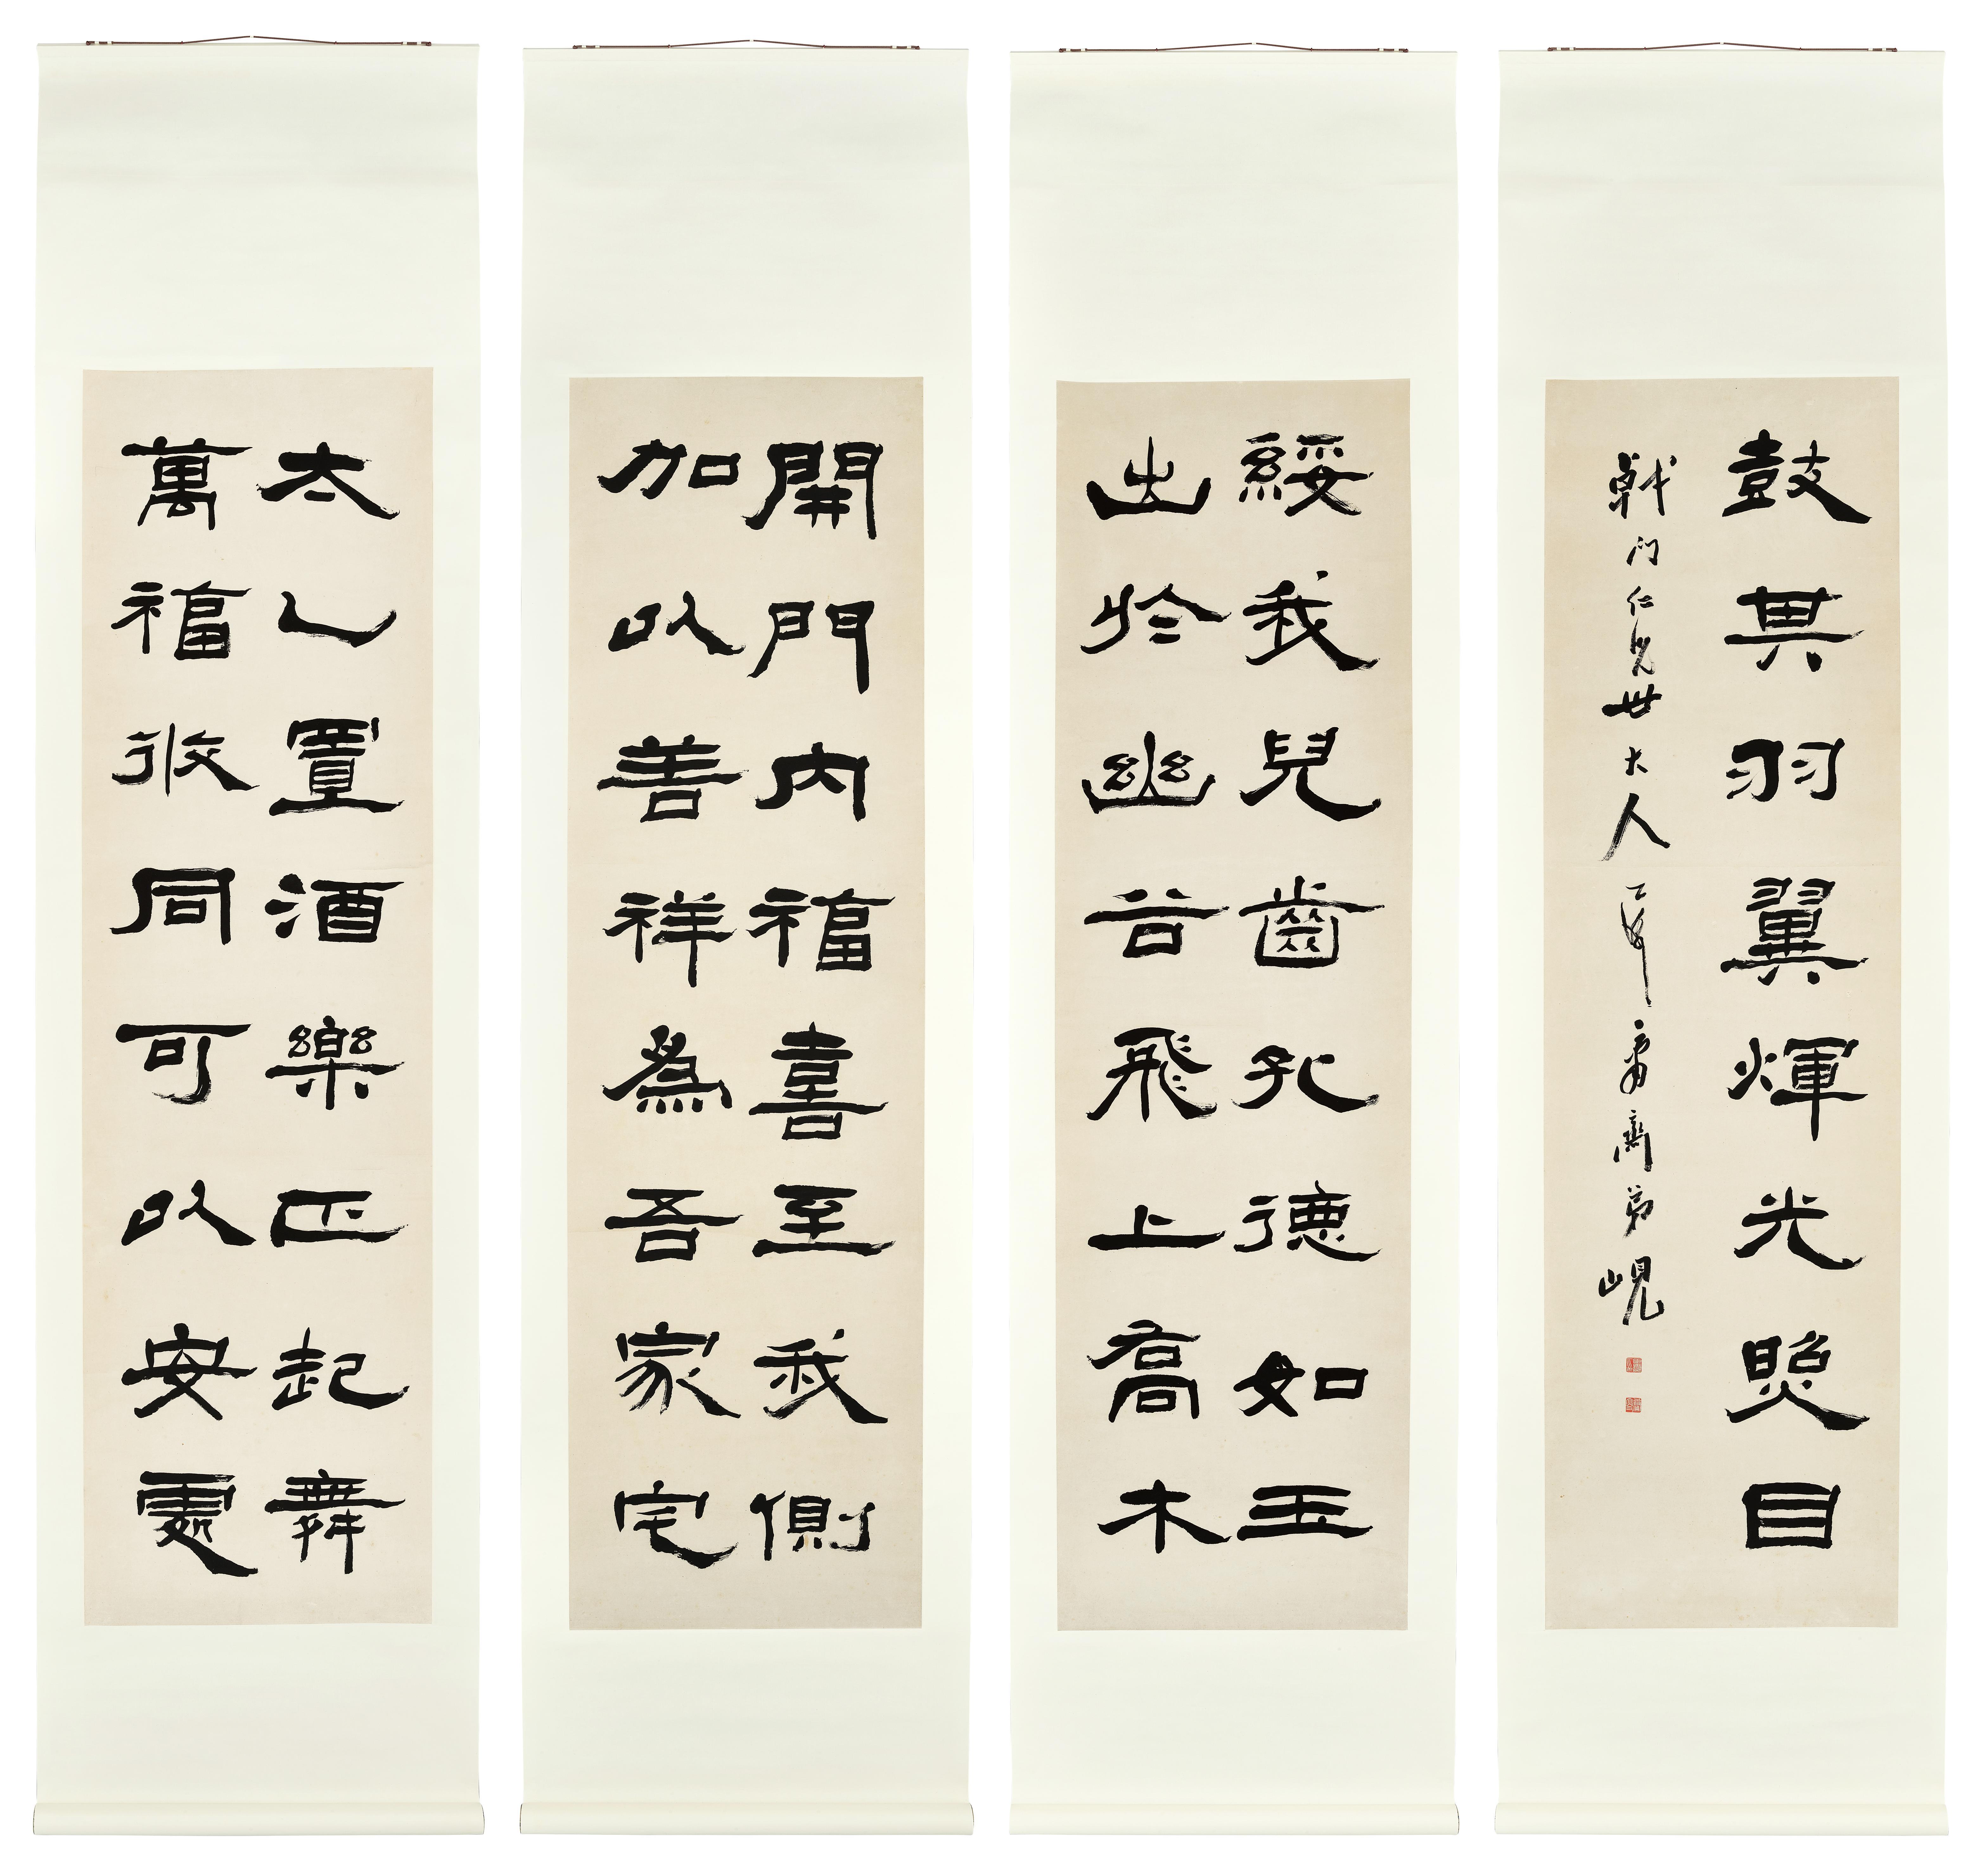 太乙置酒樂正起舞
萬福攸同可以安處
開門內福喜至我側
加以善祥爲吾家宅
綏我兒齒孔德如玉
出於幽谷飛上喬木
鼓其羽翼煇光照目
戟門仁兄世大人 庸齋弟峴